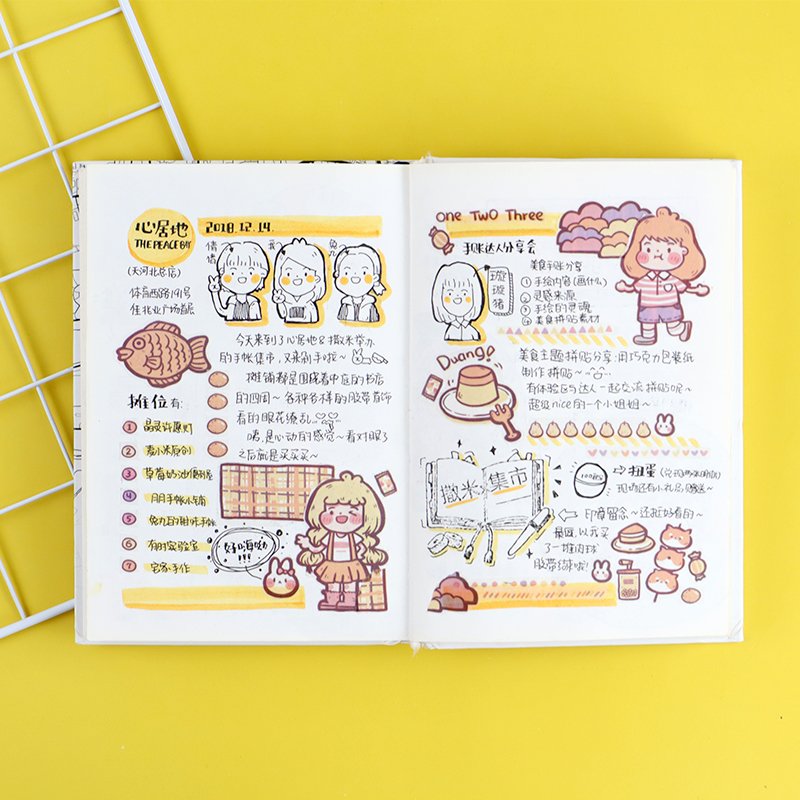 心居地
THE PEACE BAY
2018.12.14.
(天河北总店)
体育西路191号
佳兆业广场首层
倩倩
我
兔九
今天来到了心居地&撒米举办
的手帐集市,又来剁手啦~
摊铺都是围绕着中庭的书店
的四周~各种各样的胶带首饰
看的眼花缭乱
嗯,是心动的感觉~看对眼了
之后就是买买买~
摊位有:
1 晶灵许愿灯
2 麦小米原创
3 草莓奶油
4 月月手帐小铺
5 兔九的甜味手帐
6 有时实验室
7 宅家手作
好嗨呦!!!
one Two Three
手账达人分享会
璇璇猪
美食手账分享
① 手绘内容(画什么)
② 灵感来源
③ 手绘的灵魂
④ 美食拼贴素材
Duang!
美食主题拼贴分享:用巧克力包装纸
制作拼贴~
有体验区与达人一起交流拼贴呢~
超级nice的一个小姐姐~
撒米集市
⇨扭蛋
现场还有小礼品赠送~
⇦印章留念~还挺好看的~
最后,以我买
了一堆肉球
胶带结束啦!